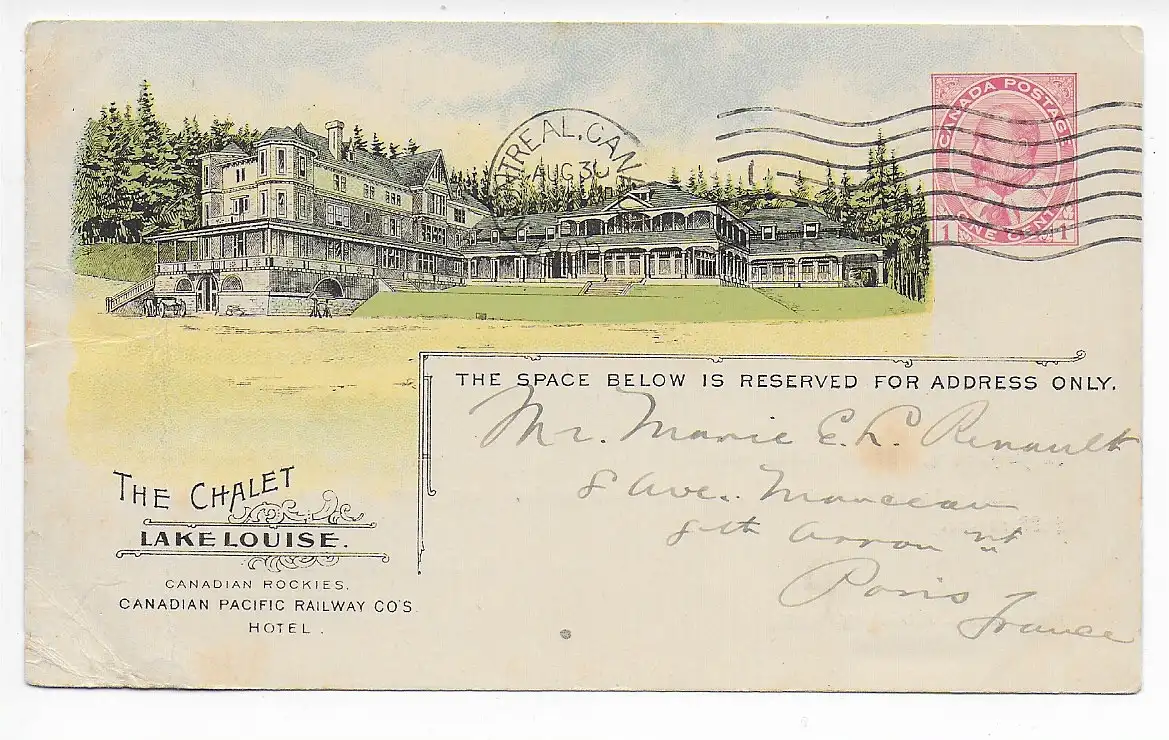 CANADA POSTAGE
1 ONE CENT 1
TREAL, CAN
AUG 30
THE SPACE BELOW IS RESERVED FOR ADDRESS ONLY.
Mr. Marie E. L. Renault
8 Ave. Manceau
8th Arron nt
Paris
France
THE CHALET
LAKE LOUISE.
CANADIAN ROCKIES.
CANADIAN PACIFIC RAILWAY CO'S
HOTEL.